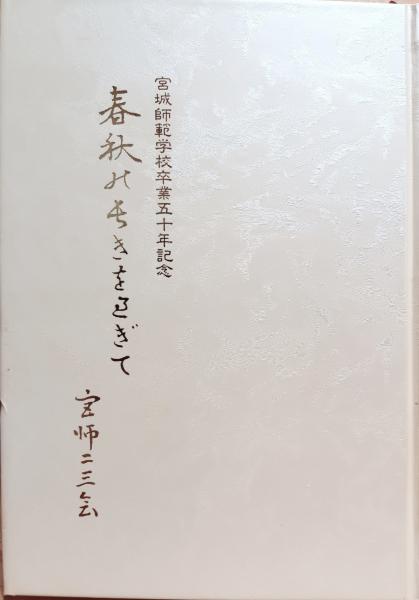 宮城師範学校卒業五十年記念
春秋の長きを過ぎて
宮師二三会